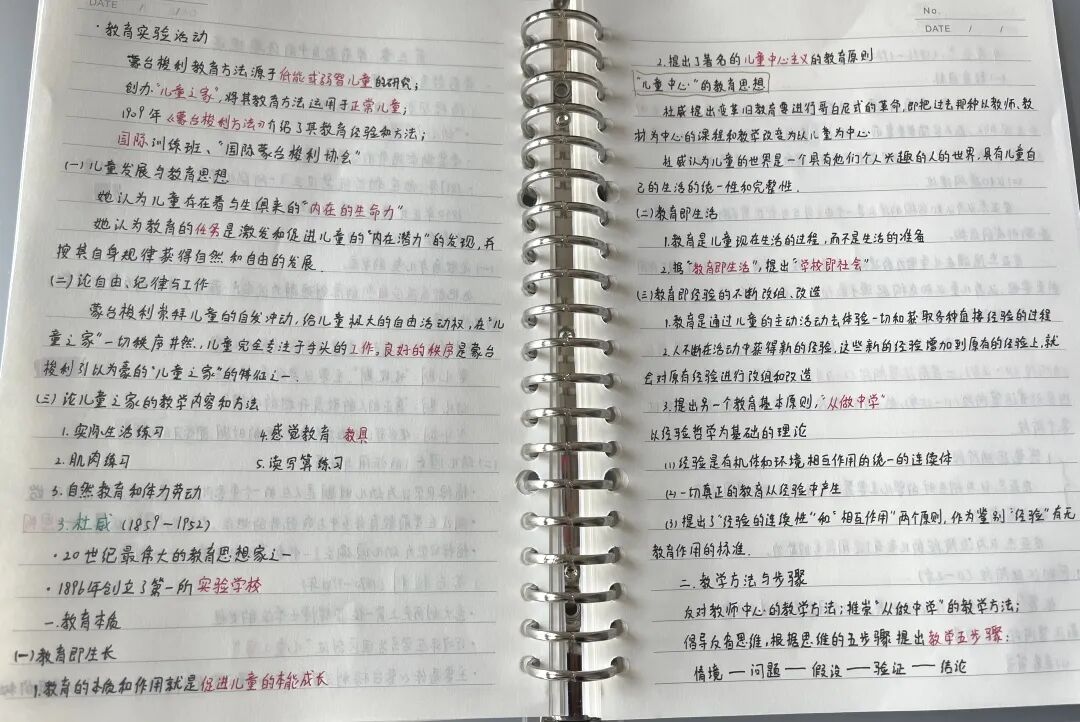 ·教育实验活动
蒙台梭利教育方法源于低能或弱智儿童的研究；
创办“儿童之家”，将其教育方法运用于正常儿童；
1909年《蒙台梭利方法》介绍了其教育经验和方法；
国际训练班、“国际蒙台梭利协会”
(一)儿童发展与教育思想
她认为儿童存在着与生俱来的“内在的生命力”
她认为教育的任务是激发和促进儿童的“内在潜力”的发现，并
按其自身规律获得自然和自由的发展．
(二)论自由、纪律与工作
蒙台梭利崇拜儿童的自发冲动，给儿童极大的自由活动权，在“儿
童之家”一切秩序井然，儿童完全专注于手头的工作。良好的秩序是蒙台
梭利引以为豪的“儿童之家”的特征之一．
(三)论儿童之家的教学内容和方法
1.实际生活练习 4.感觉教育 教具
2.肌肉练习 5.读写算练习
3.自然教育和体力劳动
3.杜威(1859－1952)
·20世纪最伟大的教育思想家之一
·1896年创立了第一所实验学校
一.教育本质
(一)教育即生长
1.教育的本质和作用就是促进儿童的本能成长
No.
DATE / /
2.提出了著名的儿童中心主义的教育原则
“儿童中心”的教育思想
杜威提出变革旧教育要进行哥白尼式的革命，即把过去那种从教师、教
材为中心的课程和教学改变为以儿童为中心．
杜威认为儿童的世界是一个具有他们个人兴趣的人的世界，具有儿童自
己的生活的统一性和完整性．
(二)教育即生活
1.教育是儿童现在生活的过程，而不是生活的准备
2.据“教育即生活”，提出“学校即社会”
(三)教育即经验的不断改组、改造
1.教育是通过儿童的主动活动去体验一切和获取各种直接经验的过程
2.人不断在活动中获得新的经验，这些新的经验增加到原有的经验上，就
会对原有经验进行改组和改造
3.提出另一个教育基本原则，“从做中学”
以经验哲学为基础的理论
(1)经验是有机体和环境相互作用的统一的连续体
(2)一切真正的教育从经验中产生
(3)提出了“经验的连续性”和“相互作用”两个原则，作为鉴别“经验”有无
教育作用的标准．
二.教学方法与步骤
反对教师中心的教学方法；推崇“从做中学”的教学方法；
倡导反省思维，根据思维的五步骤提出教学五步骤：
情境——问题——假设——验证——结论